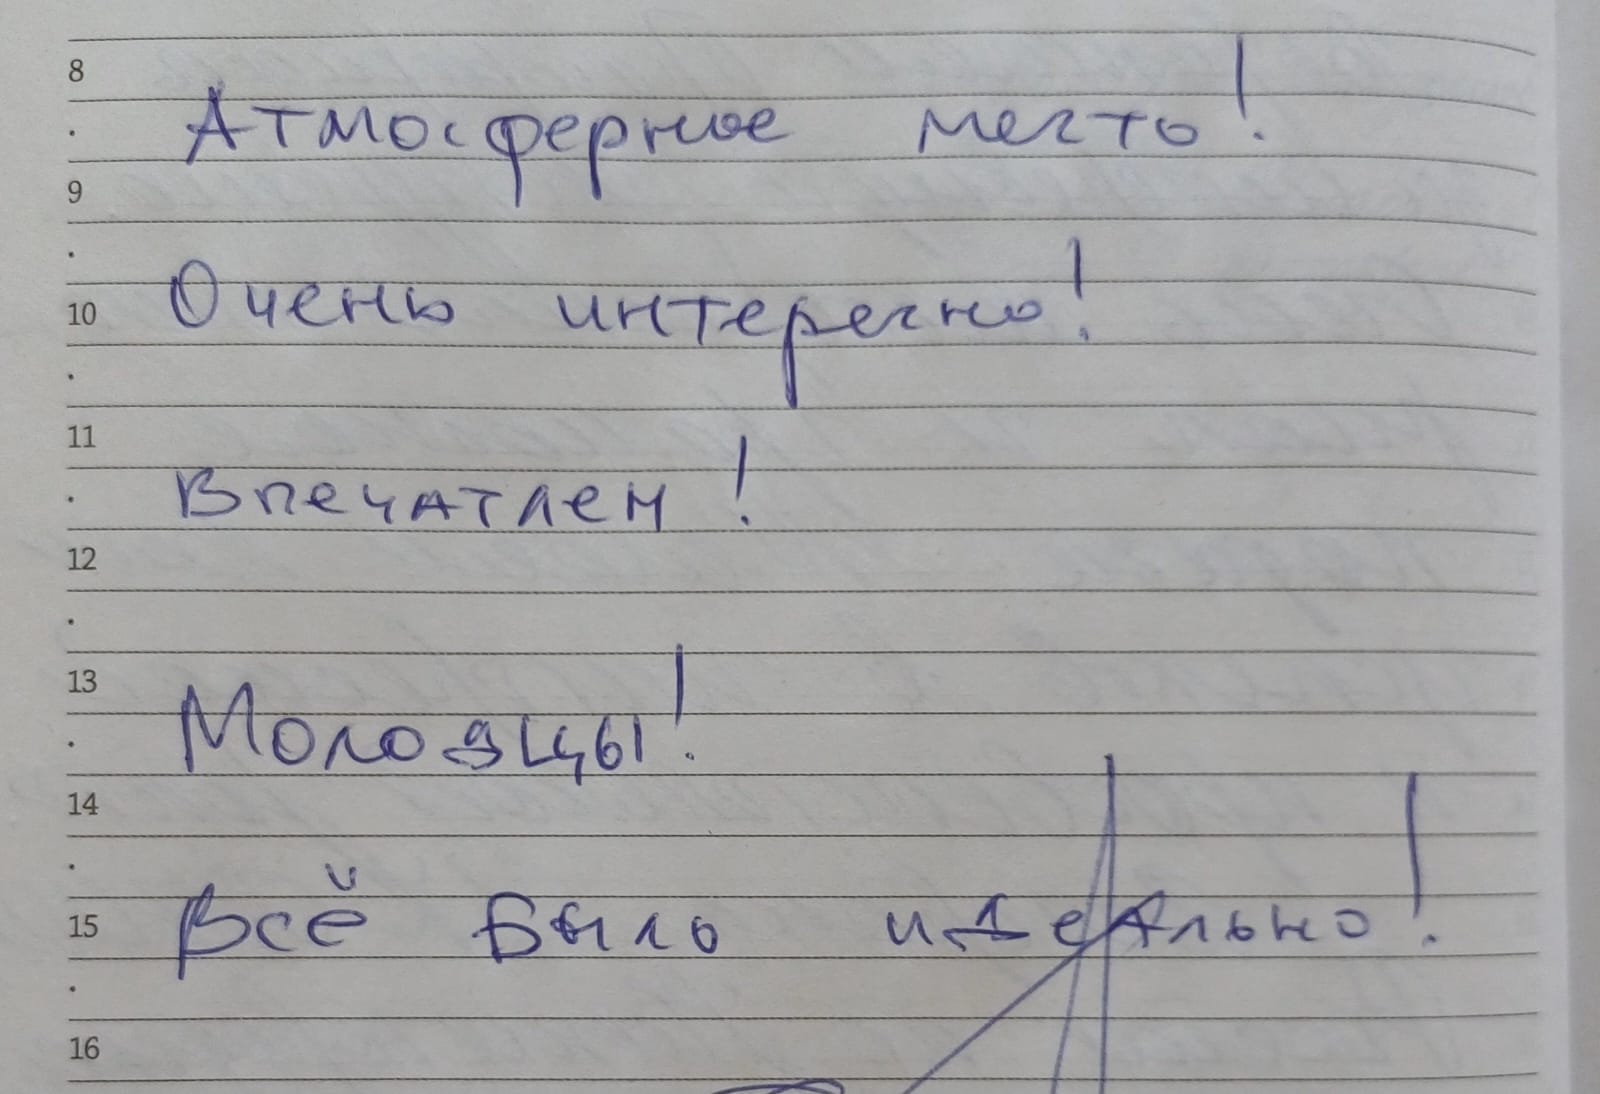 8
Атмосферное место!
9
10 Очень интересно!
11
Впечатлен!
12
13
Молодцы!
14
15 Всё было идеально!
16